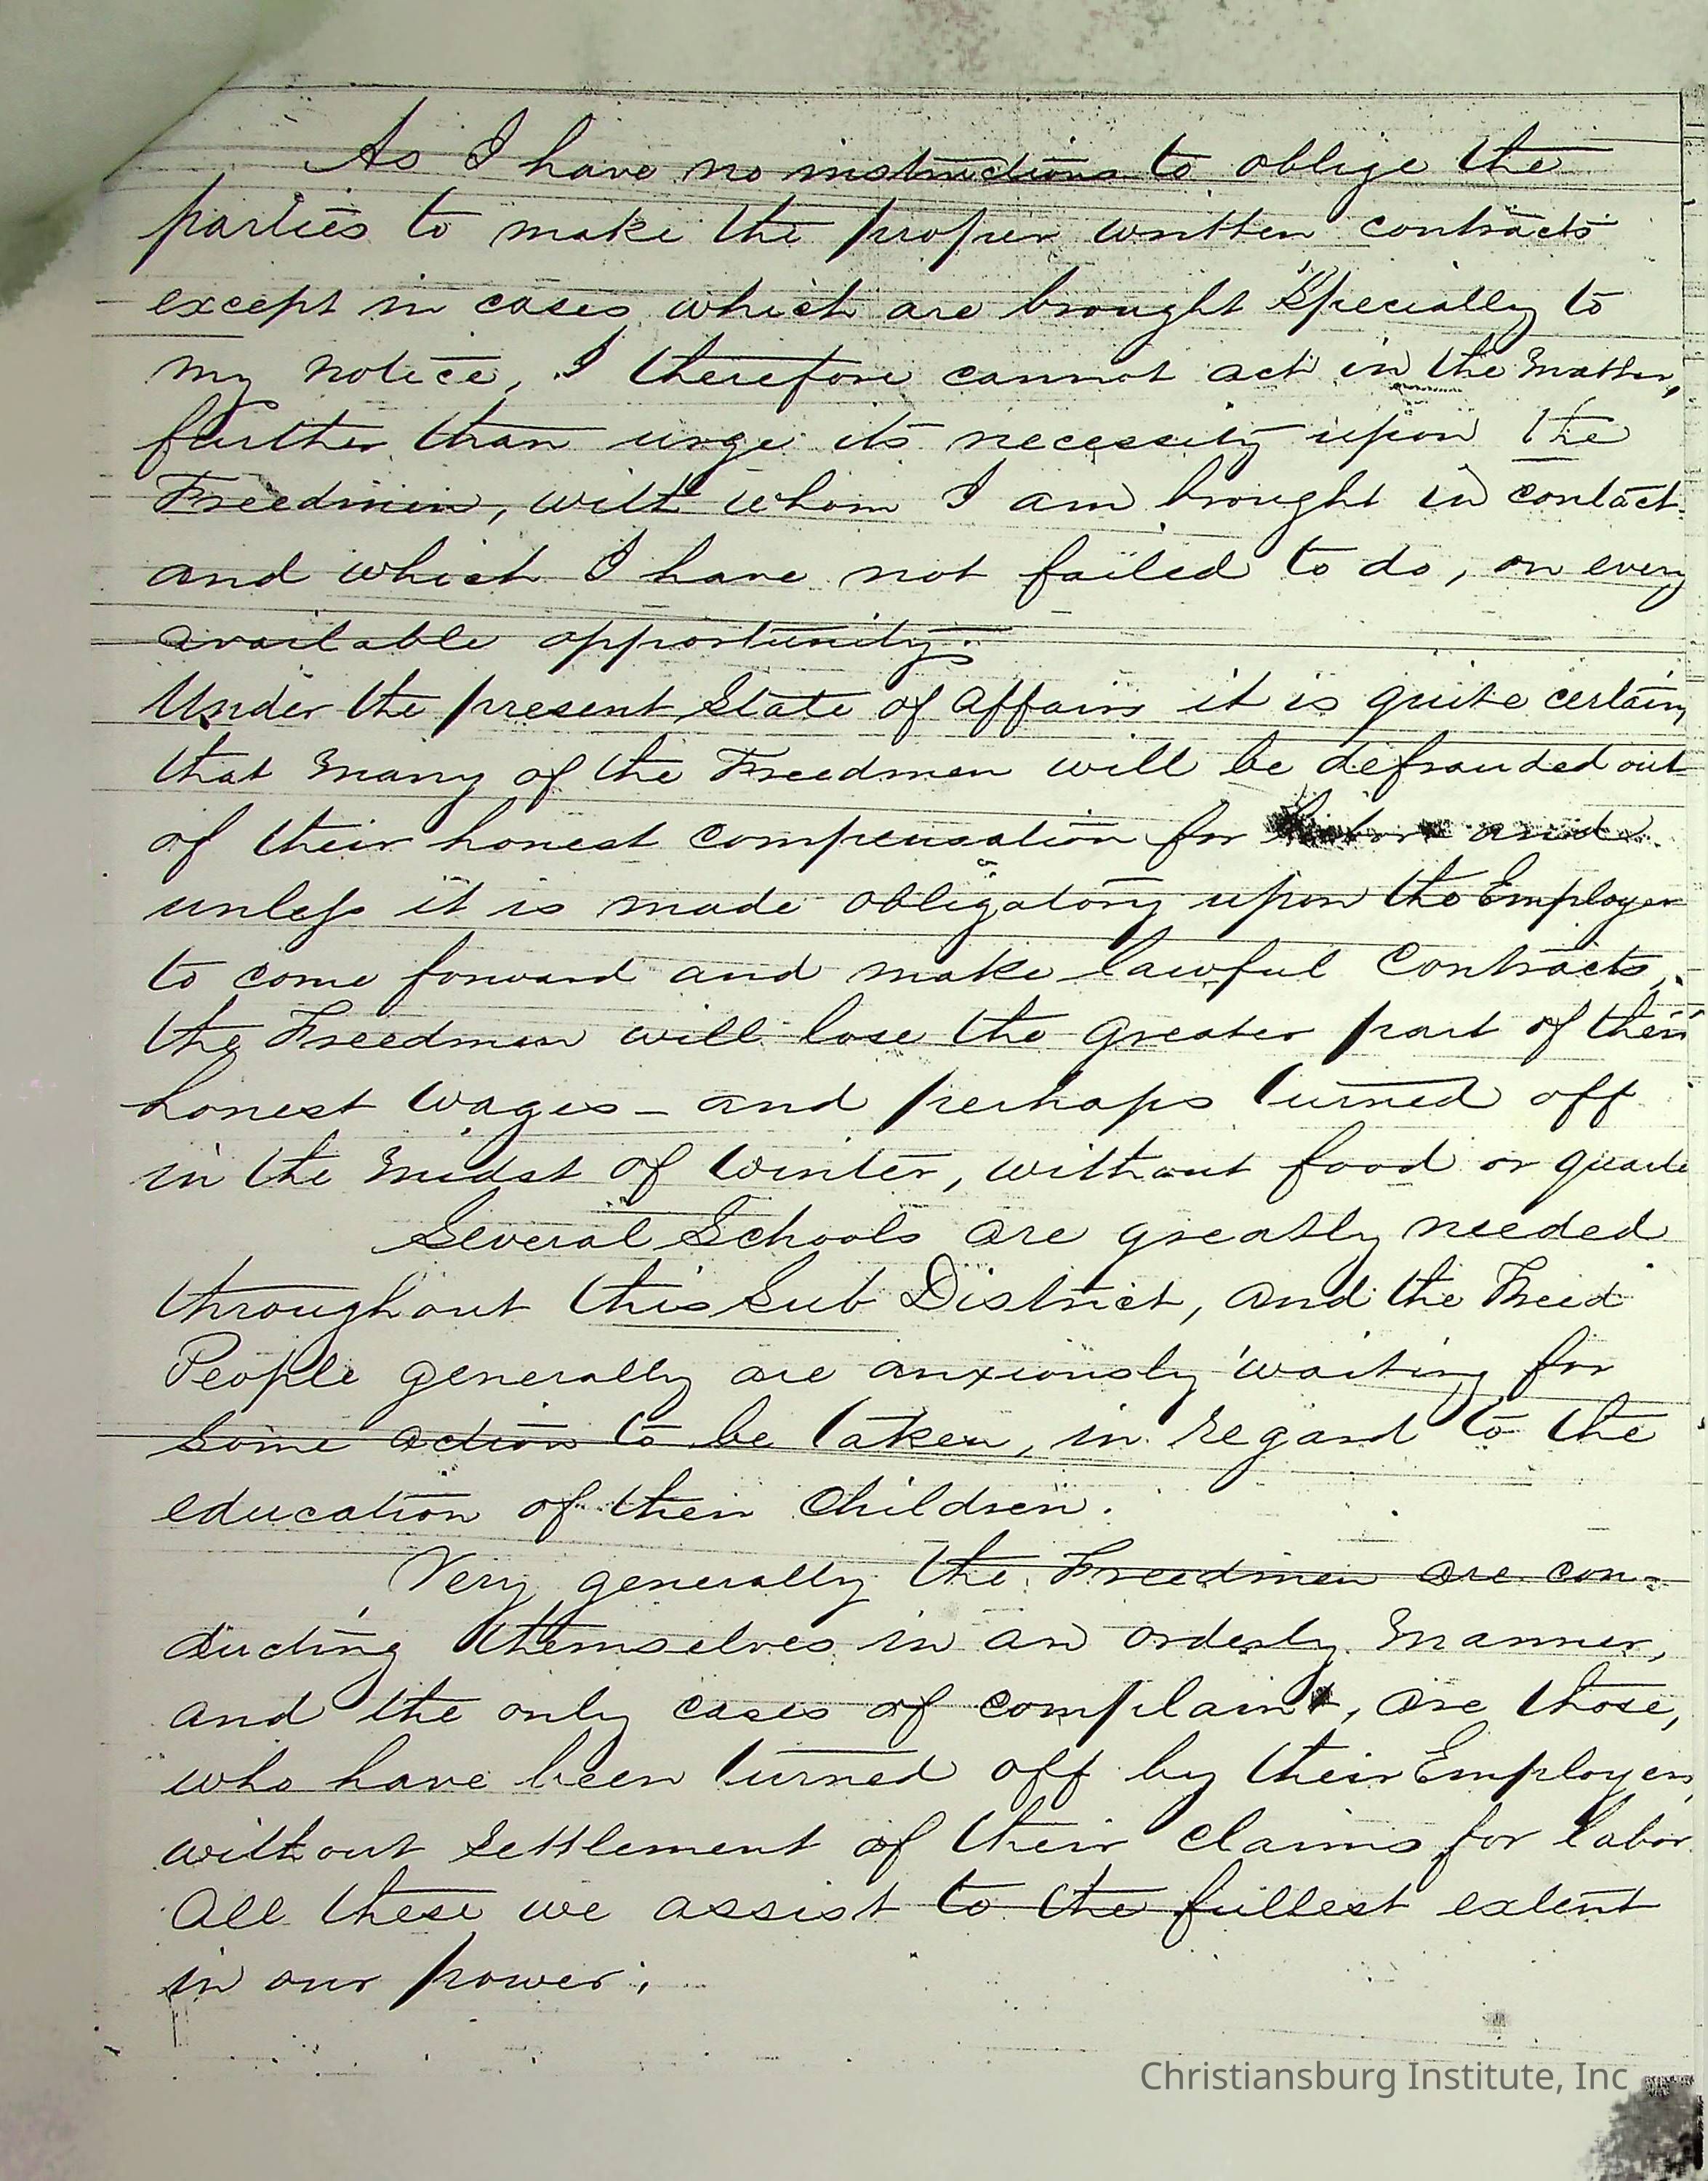 As I have no instructions to oblige the
parties to make the proper written contracts
except in cases which are brought Specially to
my notice, I therefore cannot act in the matter,
further than urge its necessity upon the
Freedmen, with whom I am brought in contact
and which I have not failed to do, on every
available opportunity.
Under the present State of affairs it is quite certain
that many of the Freedmen will be defrauded out
of their honest compensation for labor and
unless it is made obligatory upon the Employer
to come forward and make lawful Contracts,
the Freedmen will lose the greater part of their
honest wages - and perhaps turned off
in the midst of winter, without food or
Several Schools are greatly needed
throughout this Sub District, and the Freed
People generally are anxiously waiting for
some action to be taken, in regard to the
education of their Children.
Very generally the Freedmen are con=
ducting themselves in an orderly manner,
and the only cases of complaint, are those,
who have been turned off by their Employers
without settlement of their claims for labor
All these we assist to the fullest extent
in our power.
Christiansburg Institute, Inc